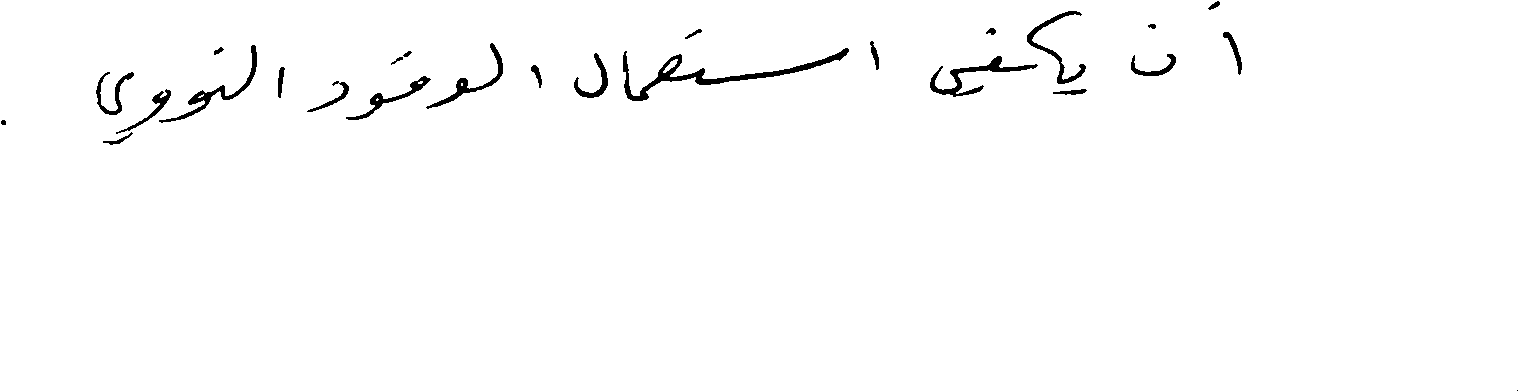 أن يكفي استعمال الوقود النووي .